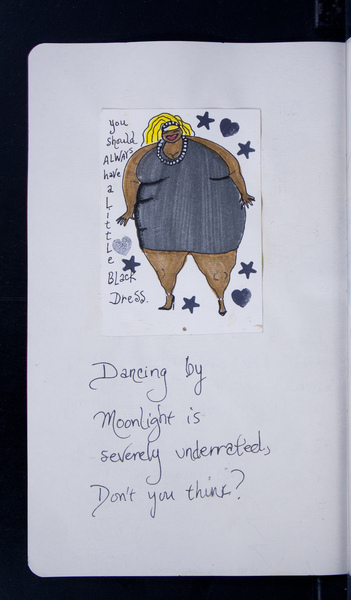 you
should
ALWAYS
have
a
Little
Black
Dress.
Dancing by
Moonlight is
severely underrated,
Don't you think?